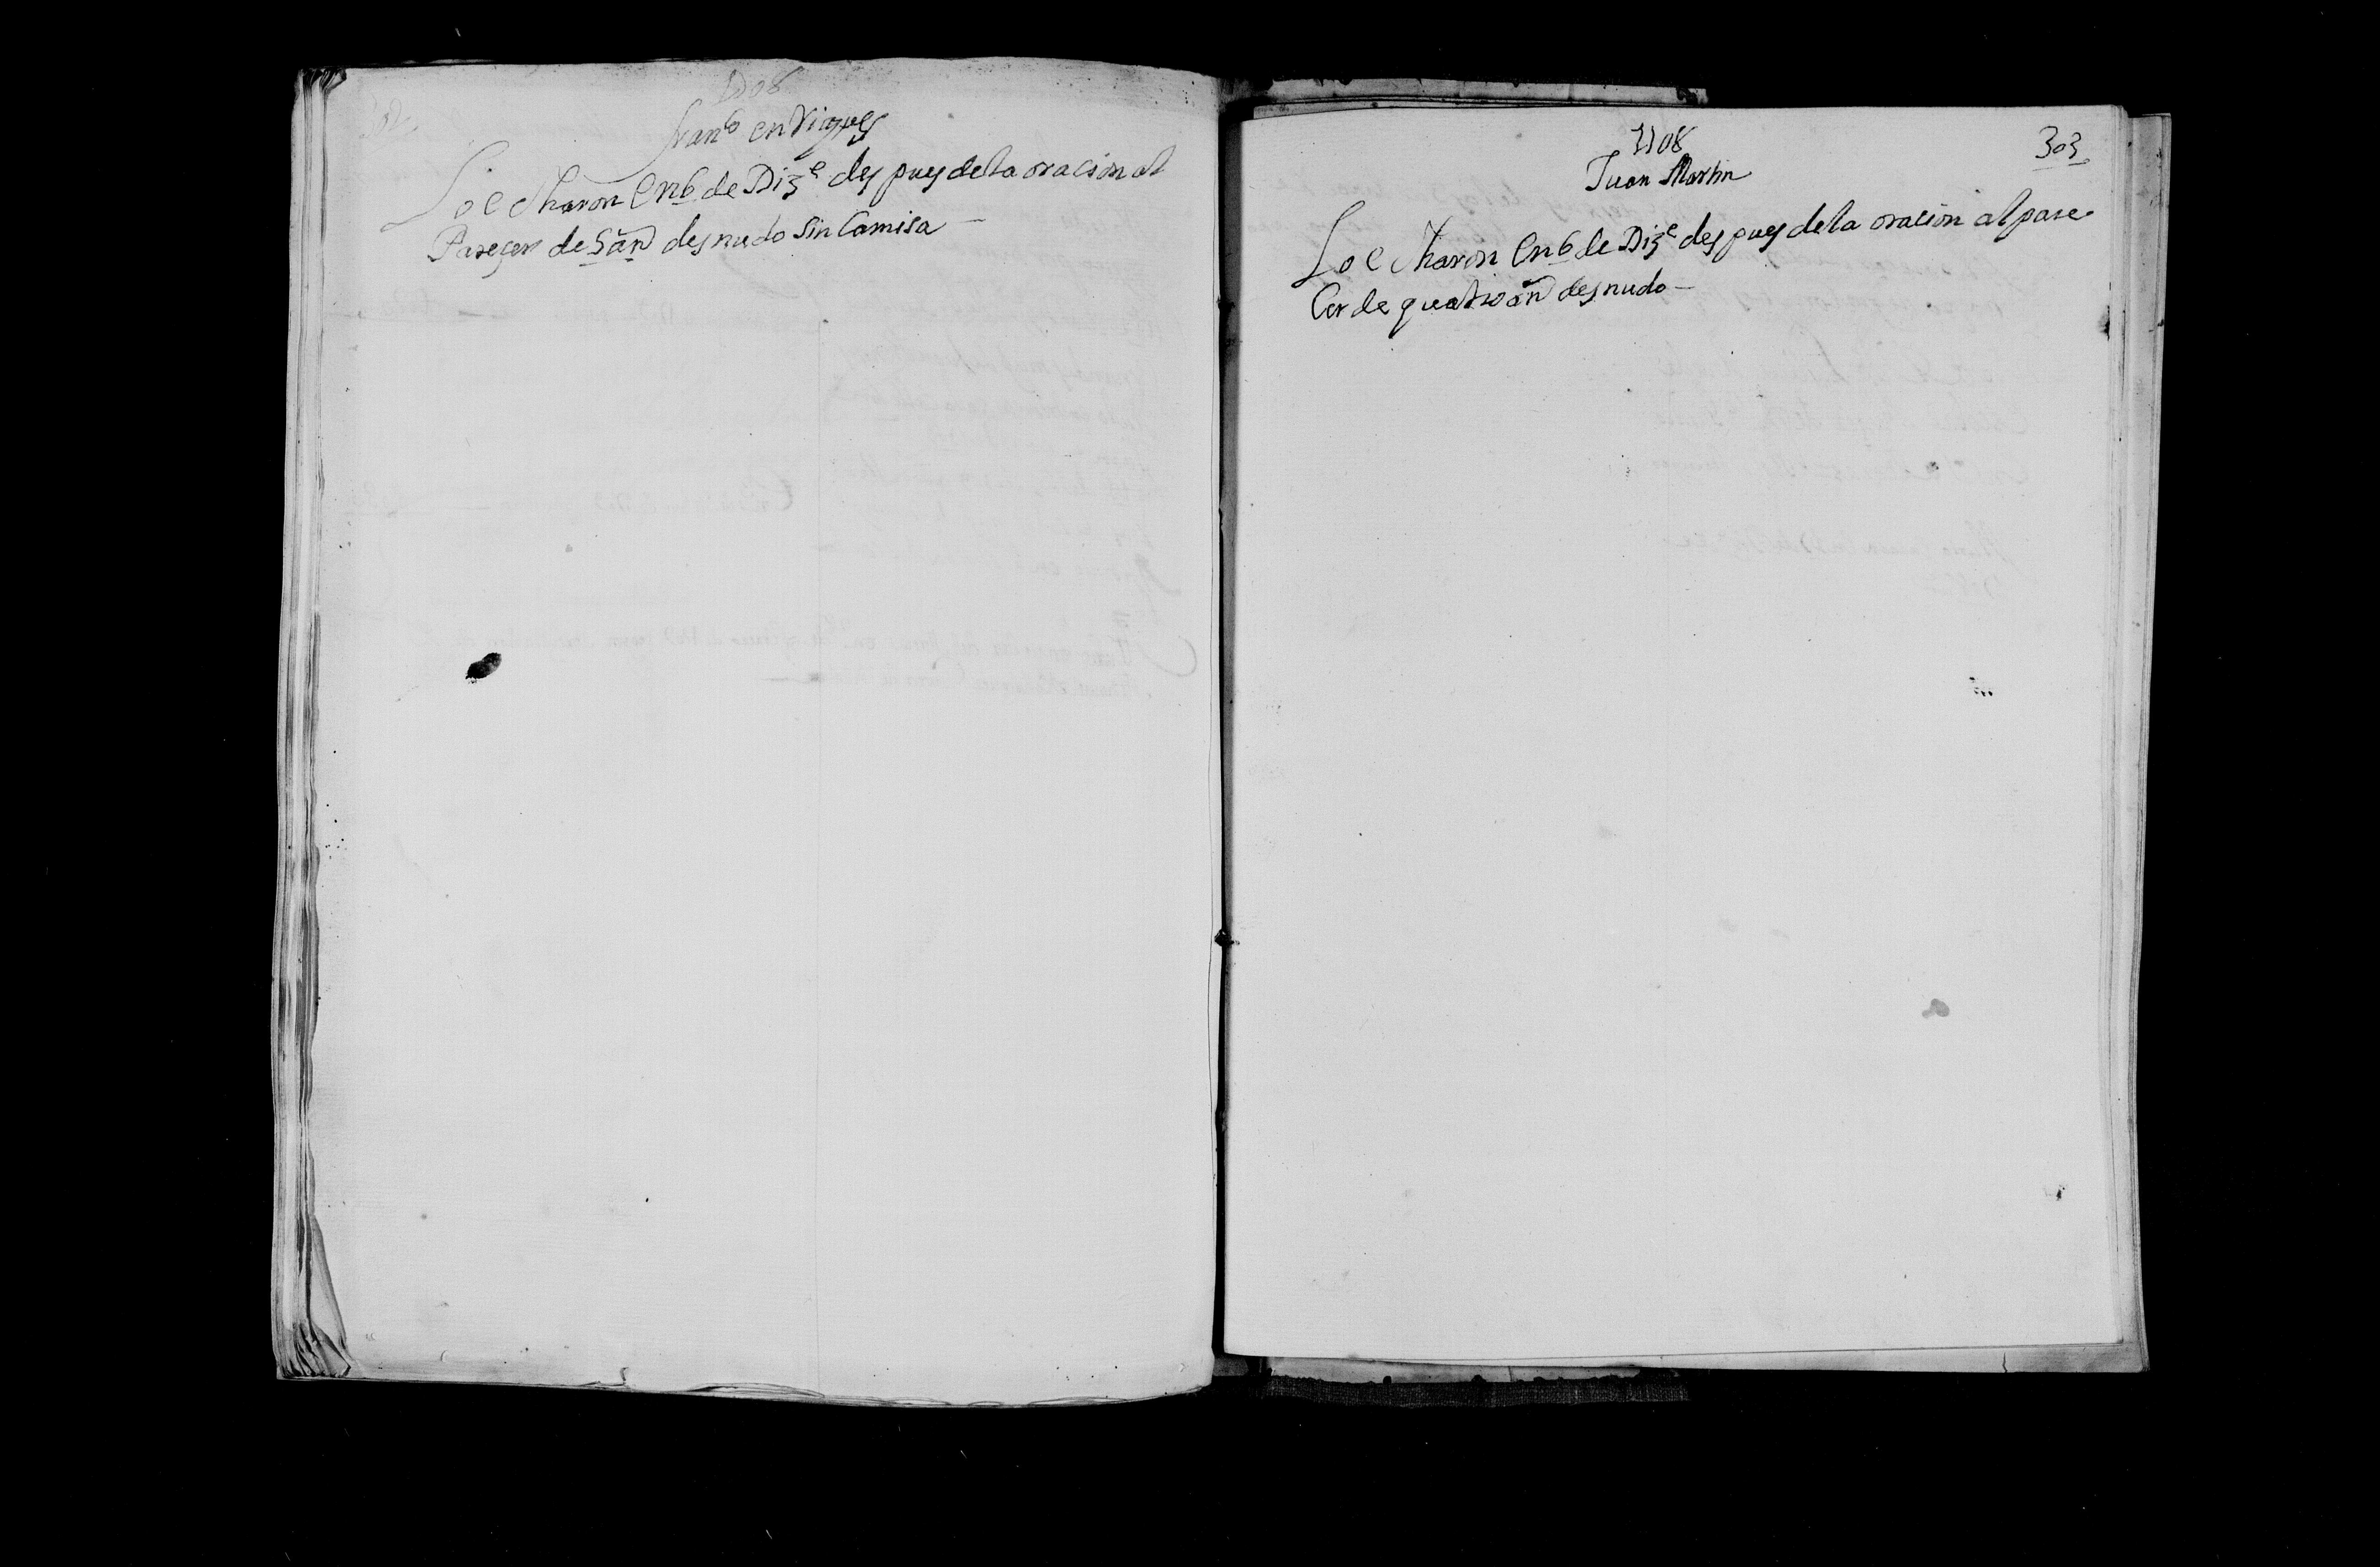 1708
franco enRiquez
Lo echaron en 6 de Dize despues de la oracion al
Pareçer de 5 añ desnudo sin Camisa —
1708
303
Juan Martin
Lo echaron en 6 de Dize despues de la oracion al pare
Cer de quatro añ desnudo —